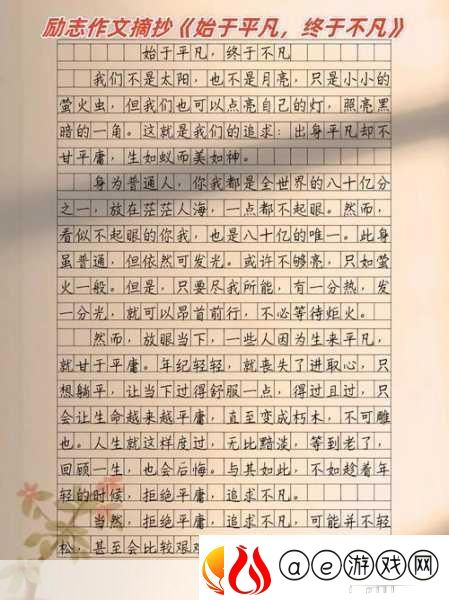 励志作文摘抄《始于平凡，终于不凡》
始于平凡，终于不凡
我们不是太阳，也不是月亮，只是小小的
萤火虫，但我们也可以点亮自己的灯，照亮黑
暗的一角。这就是我们的追求：出身平凡却不
甘平庸，生如蚁而美如神。
身为普通人，你我都是全世界的八十亿分
之一，放在茫茫人海，一点都不起眼。然而，
看似不起眼的你我，也是八十亿的唯一。此身
虽普通，但依然可发光。或许不够亮，只如萤
火一般。但是，只要尽我所能，有一分热，发
一分光，就可以昂首前行，不必等待炬火。
然而，放眼当下，一些人因为生来平凡，
就甘于平庸。年纪轻轻，就丧失了进取心，只
想躺平，让当下过得舒服一点，得过且过，只
会让生命越来越平庸，直至变成朽木，不可雕
也。人生就这样度过，无比黯淡，等到老了，
回顾一生，也会后悔。与其如此，不如趁着年
轻的时候，拒绝平庸，追求不凡。
当然，拒绝平庸，追求不凡，可能并不轻
松，甚至会比较艰
ae游戏网